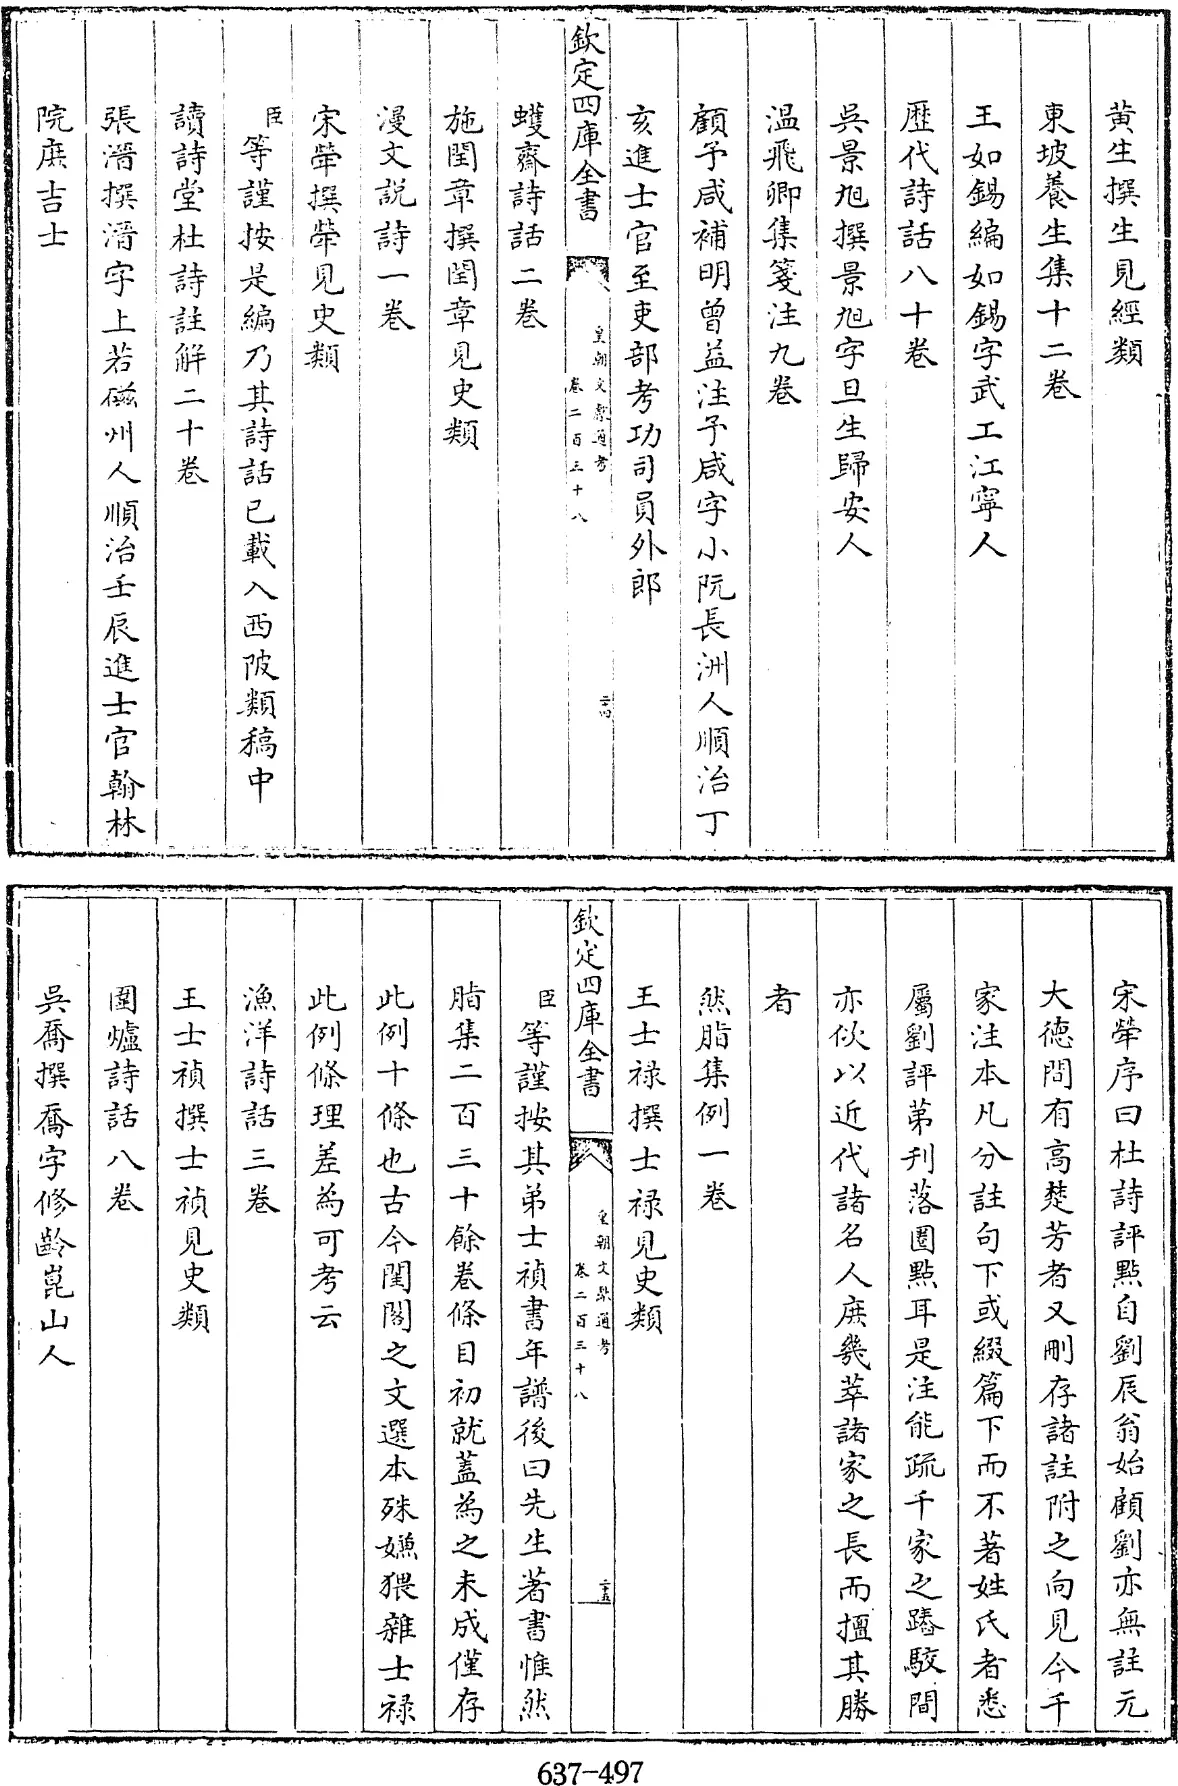 黄生撰生見經類
東坡養生集十二卷
王如錫編如錫字武工江寧人
歷代詩話八十卷
吳景旭撰景旭字旦生歸安人
溫飛卿集箋注九卷
顧予咸補明曾益注予咸字小阮長洲人順治丁
亥進士官至吏部考功司員外郎
欽定四庫全書
皇朝文獻通考
卷二百三十八
二十四
蠖齋詩話二卷
施閏章撰閏章見史類
漫文説詩一卷
宋犖撰犖見史類
臣等謹按是編乃其詩話已載入西陂類稿中
讀詩堂杜詩註解二十卷
張溍撰溍字上若磁州人順治壬辰進士官翰林
院庶吉士
宋犖序曰杜詩評點自劉辰翁始顧劉亦無註元
大德間有高楚芳者又刪存諸註附之向見今千
家注本凡分註句下或綴篇下而不著姓氏者悉
屬劉評第刋落圈點耳是注能疏千家之踳駁間
亦佽以近代諸名人庶幾萃諸家之長而擅其勝
者
然脂集例一卷
王士禄撰士禄見史類
欽定四庫全書
皇朝文獻通考
卷二百三十八
二十五
臣等謹按其弟士禎書年譜後曰先生著書惟然
脂集二百三十餘卷條目初就蓋為之未成僅存
此例十條也古今閨閣之文選本殊嫌猥雜士禄
此例條理差為可考云
漁洋詩話三卷
王士禎撰士禎見史類
圍爐詩話八卷
吳喬撰喬字修齡崑山人
637-497